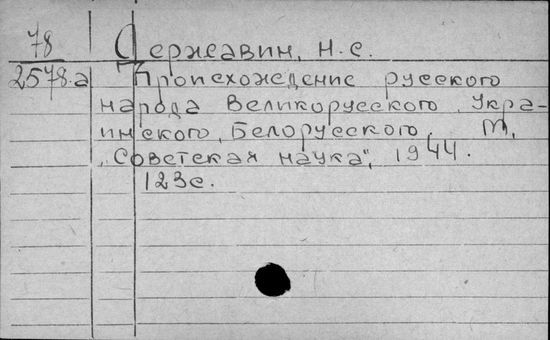 78
2578.а
Державин, Н.С.
Происхождение русского
народа Великорусского, Укра-
инского, Белорусского. М.
„Советская наука", 1944.
123с.